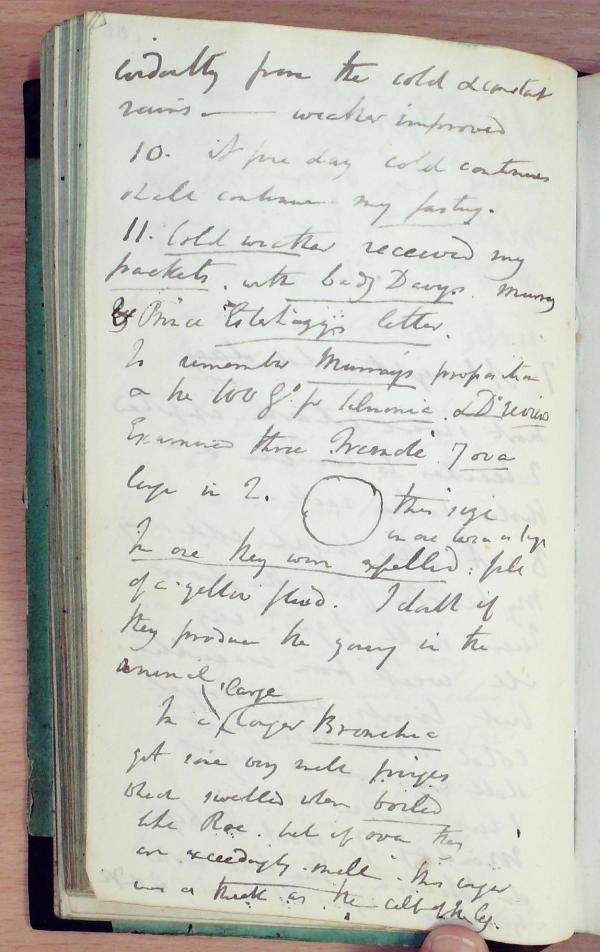 from the cold & constant
rains — weather improved
10. A fine day cold continues
shall continue my fasting.
11. Cold weather received my
packets. with Lady Davys. Murray
& Prince letter.
To remember Murrays proposition
& the 100 for Salmonia. & Dr
Examined three 7 ova
large in 2. this size
in one twice as large
In one they were expelled: full
of a yellow fluid. I doubt if
they produce the young in the
animal
large
In a larger
got some very small fringes
which swelled when boiled
like Roe. but if ova they
are exceedingly small. this
was as thick as the calf of the leg.